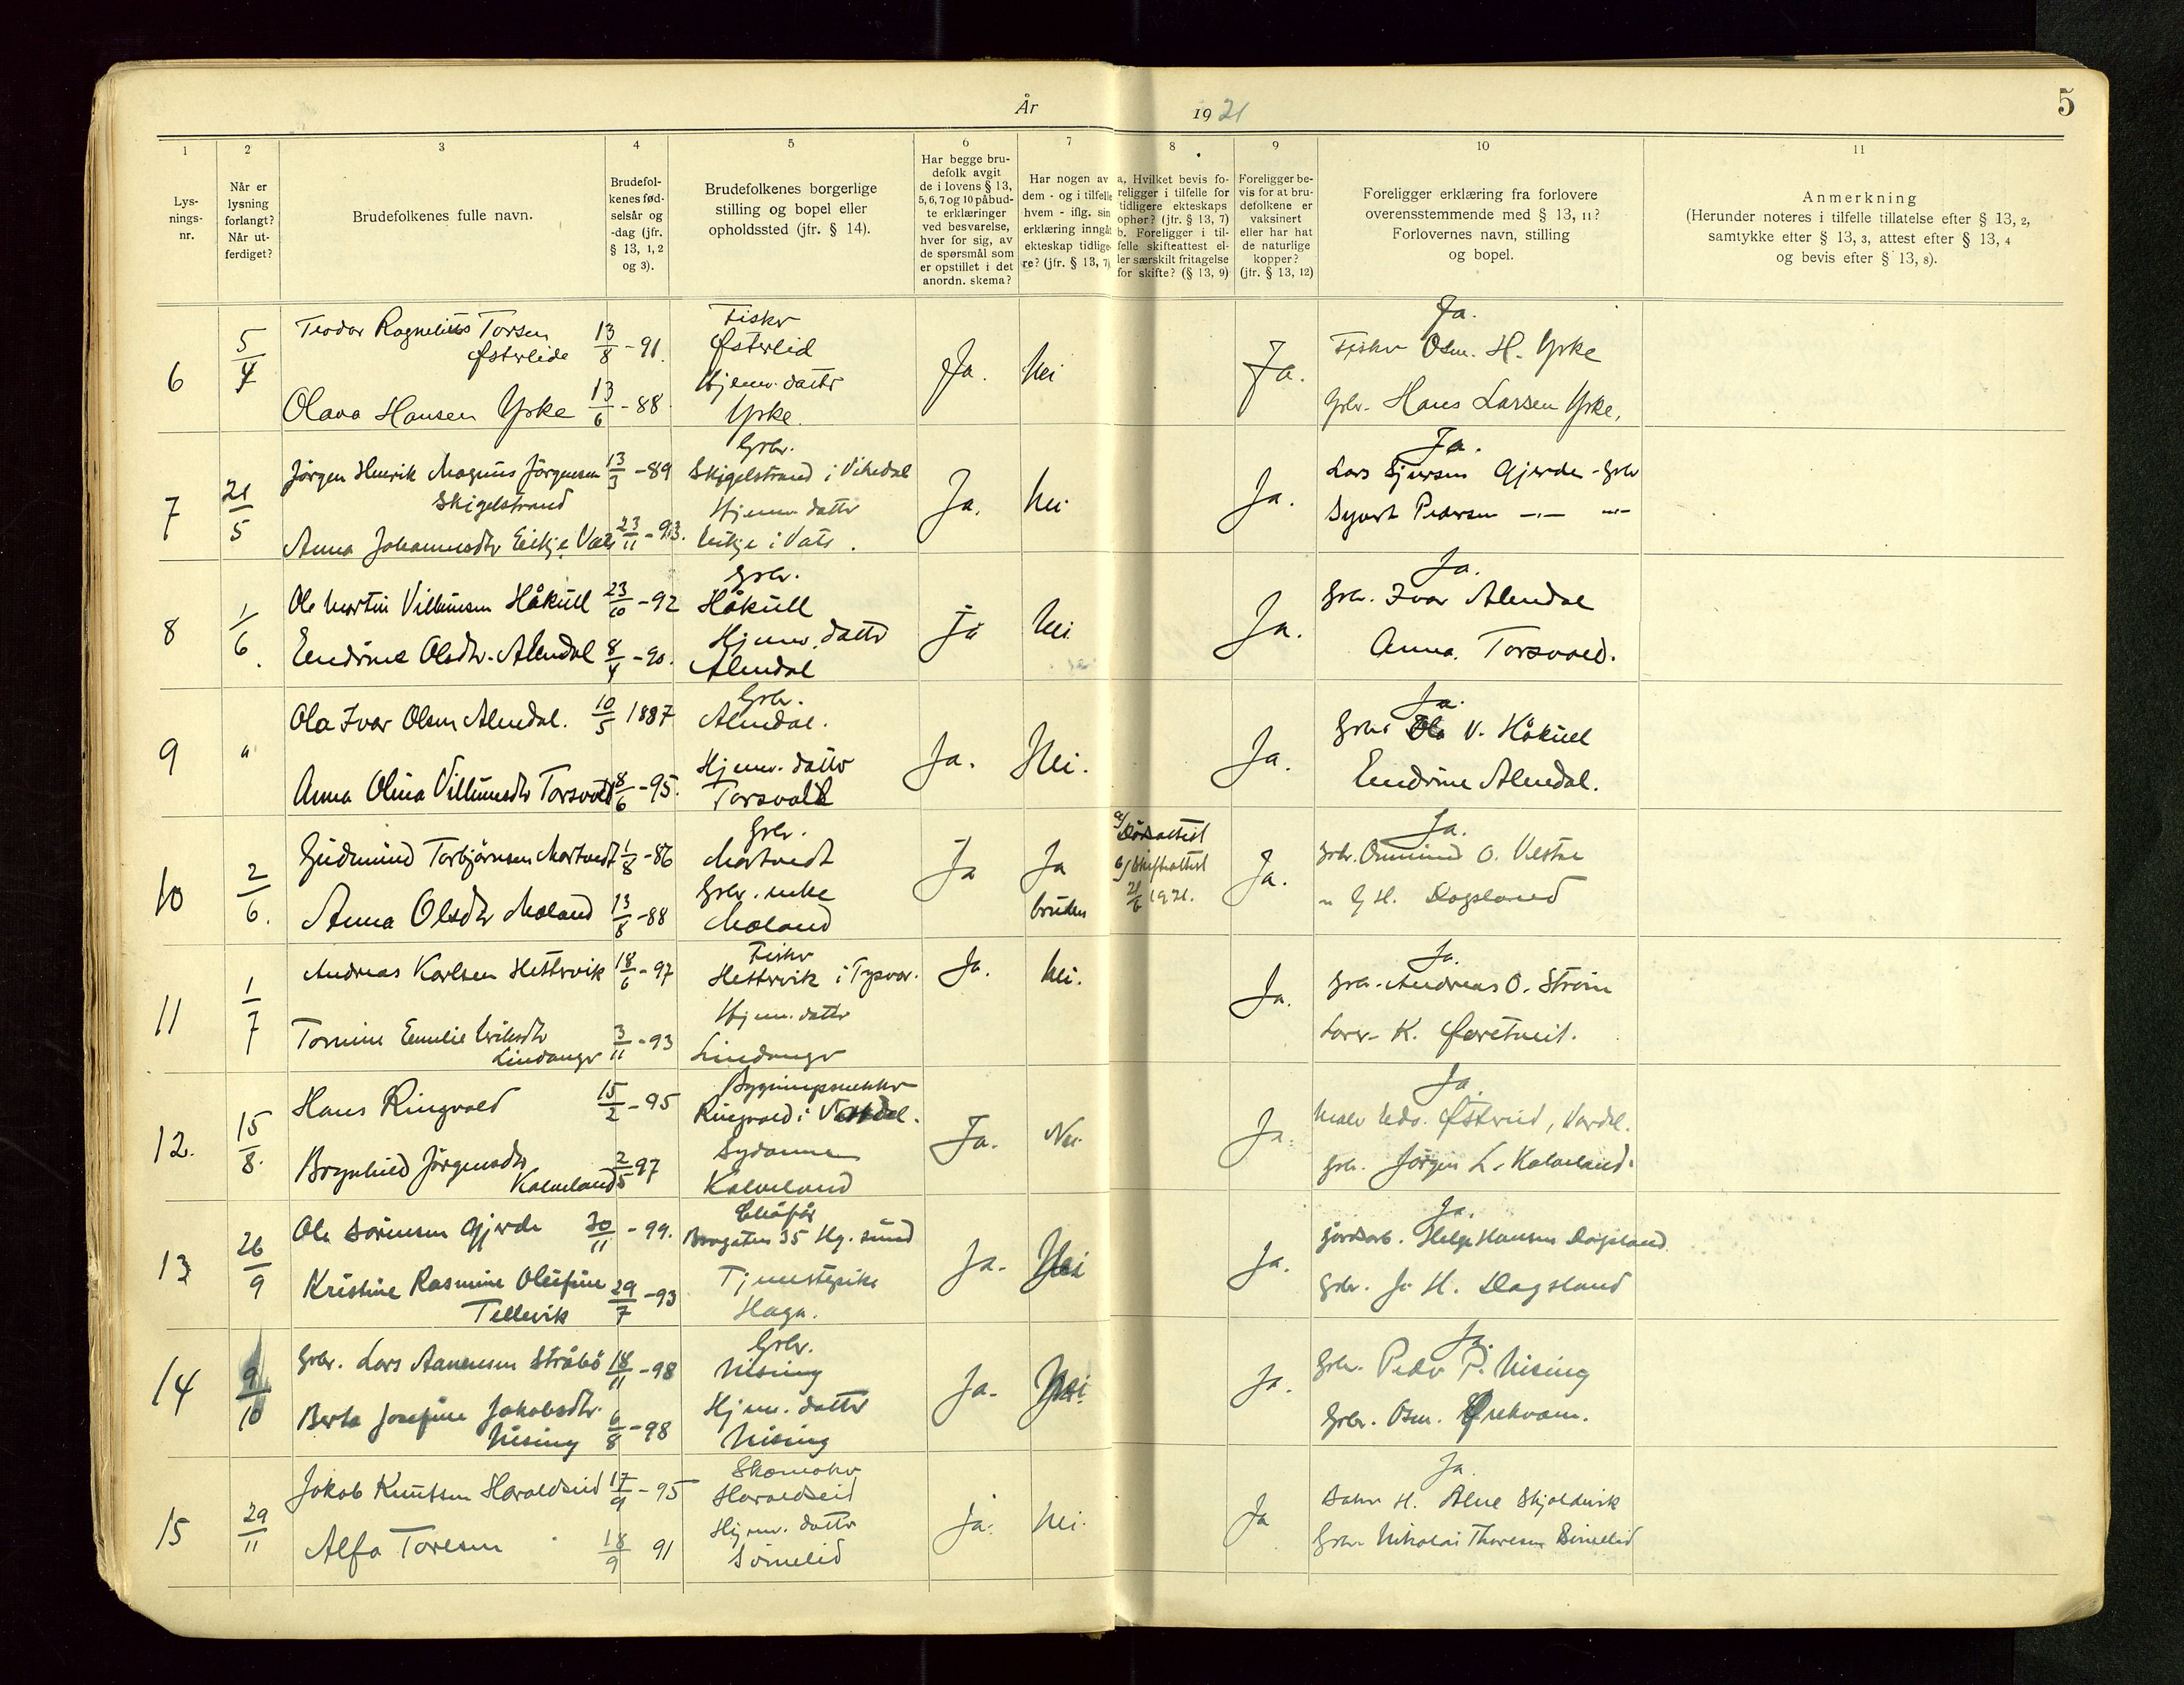 År 1921
5
1 2 3 4 5 6 7 8 9 10 11
Lys-
nings-
nr.
Når er
lysning
forlangt?
Når ut-
ferdiget?
Brudefolkenes fulle navn.
Brudefol-
kenes fød-
selsår og
-dag (jfr.
§ 13, 1, 2
og 3).
Brudefolkenes borgerlige
stilling og bopel eller
opholdssted (jfr. § 14).
Har begge bru-
defolk avgit
de i lovens § 13,
5, 6, 7 og 10 påbud-
te erklæringer
ved besvarelse,
hver for sig, av
de spørsmål som
er opstillet i det
anordn. skema?
Har nogen av
dem - og i tilfelle
hvem - iflg. sin
erklæring inngåt
ekteskap tidlige-
re? (jfr. § 13, 7)
a. Hvilket bevis fo-
religger i tilfelle for
tidligere ekteskaps
ophør? (jfr. § 13, 7)
b. Foreligger i til-
felle skifteattest el-
ler særskilt fritagelse
for skifte? (§ 13, 9)
Foreligger be-
vis for at bru-
defolkene er
vaksinert
eller har hat
de naturlige
kopper?
(jfr. § 13, 12)
Foreligger erklæring fra forlovere
overensstemmende med § 13, 11?
Forlovernes navn, stilling
og bopel.
Anmerkning
(Herunder noteres i tilfelle tillatelse efter § 13, 2,
samtykke efter § 13, 3, attest efter § 13, 4
og bevis efter § 13, 8).
6
5/4
Teodor Torsen
Østerlide
13/8 - 91.
Olava Hansen Yrke
13/6 - 88.
Fisker
Østerlid
Hjemv. datter
Yrke.
Ja.
Nei
Ja.
Ja.
Fisker Osm. H. Yrke
Grbr. Hans Larsen Yrke.
7
21/5
Jörgen Henrik Magnus Jörgensen
Skigelstrand
13/3 - 89
Anna Johannesdtr Eikje Vats
23/11 - 93.
Grbr.
Skigelstrand i Vikedal
Hjemv. datter
Eikje i Vats.
Ja.
Nei
Ja.
Ja.
Lars Gjerde - Grbr
Syvert Pedersen -"- -"-
8
1/6.
Ole Martin Villumsen Håkull
23/10 - 92
Endrine Olsdtr. Alendal
8/4 - 90.
Grbr.
Håkull
Hjemv. datter
Alendal
Ja
Nei
Ja.
Ja.
Grbr. Ivar Alendal
Anna Torsvold.
9
"
Ola Ivar Olsen Alendal.
10/5 1887
Anna Olina Villumsdtr Torsvold
8/6 - 95.
Grbr.
Alendal.
Hjemv. datter
Torsvold
Ja.
Nei.
Ja.
Ja.
Grbr Ole V. Håkull
Endrine Alendal.
10
2/6.
Gudmund Torbjörnsen Mortvedt
1/8 - 86
Anna Olsdtr Moland
13/8 - 88
Grbr.
Mortvedt
Grbr. enke
Moland
Ja
Ja
bruden
a/ Dödsattest
b/ Skifteattest
21/6 1921.
Ja.
Ja.
Grbr. O.
" G H. Dagsland
11
1/7
Andreas Karlsen Hettervik
18/6 - 97
Tomine Emelie Eriksdtr
Lindanger
3/11 - 93
Fisker
Hettervik i Tysvær.
Hjemv. datter
Lindanger
Ja.
Nei.
Ja.
Ja.
Grbr. Andreas O. Ström
Lærer K. Øretveit.
12.
15/8.
Hans Ringvold
15/2 - 95
Brynhild Jörgensdtr
Kalveland
2/5 97
Bygningssnekker
Ringvold i
Sydame
Kalveland
Ja.
Nei.
Ja.
Ja.
Maler Østerud,
Grbr. Jörgen L. Kalveland.
13
26/9
Ole Sörensen Gjerde
30/11 - 99.
Kristine Rasmine Olufine
Tellevik
29/7 - 93
Chåfør
35 Hg. sund
Tjenestepike
Haga.
Ja.
Nei
Ja.
Ja.
Gårdsarb. Helge Hansen Dagsland
Grbr. J. H. Dagsland
14
9/10
Grbr. Lars Aanensen Stråbö
18/11 - 98
Berta Josefine Jakobsdtr.
Nising
6/8 - 98
Grbr.
Nising
Hjemv. datter
Nising
Ja.
Nei.
Ja.
Ja.
Grbr. Peder P. Nising
Grbr. Osm. Ørekvam.
15
29/11
Jakob Knutsen Haraldseid
17/9 - 95
Alfa Toresen
18/9 91
Skomaker
Haraldseid
Hjemv. datter
Sörnelid
Ja.
Nei.
Ja
Ja.
Baker H. Alne Skjoldevik
Grbr. Nikolai Thoresen